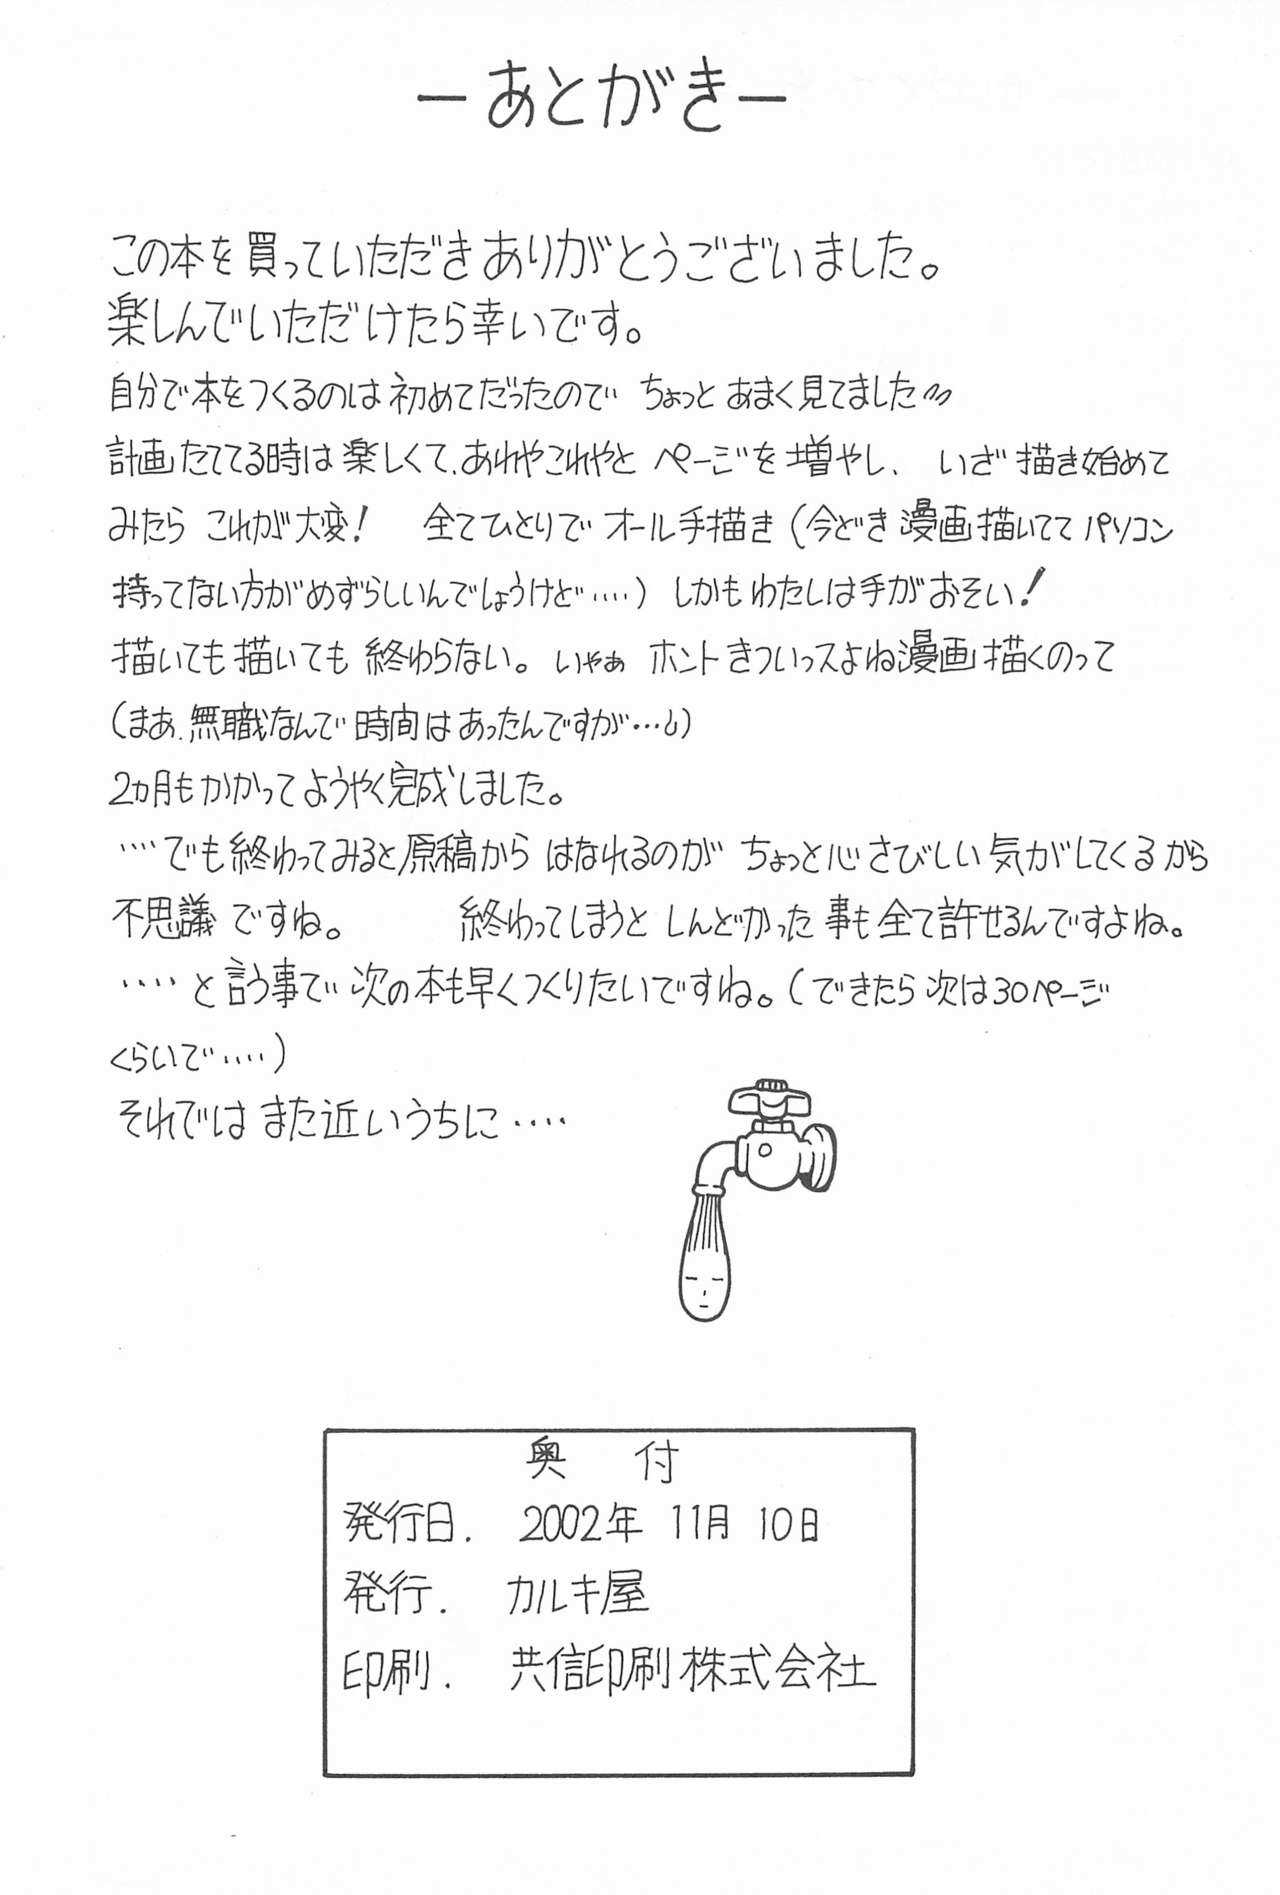 ーあとがきー
この本を買っていただきありがとうございました。
楽しんでいただけたら幸いです。
自分で本をつくるのは初めてだったので ちょっとあまく見てました
計画たててる時は楽しくて、あれやこれやと ページを増やし、 いざ描き始めて
みたら これが大変! 全てひとりで オール手描き(今どき漫画描いててパソコン
持ってない方がめずらしいんでしょうけど‥‥)しかもわたしは手がおそい!
描いても描いても 終わらない。いやぁ ホントきついっスよね漫画描くのって
(まあ、無職なんで 時間はあったんですが…)
2ヵ月もかかってようやく完成しました。
‥‥でも終わってみると原稿から はなれるのが ちょっと心さびしい気がしてくるから
不思議ですね。 終わってしまうと しんどかった事も全て許せるんですよね。
‥‥と言う事で 次の本も早くつくりたいですね。(できたら次は30ページ
くらいで‥‥)
それではまた近いうちに‥‥
奥 付
発行日. 2002年 11月 10日
発行. カルキ屋
印刷. 共信印刷株式会社